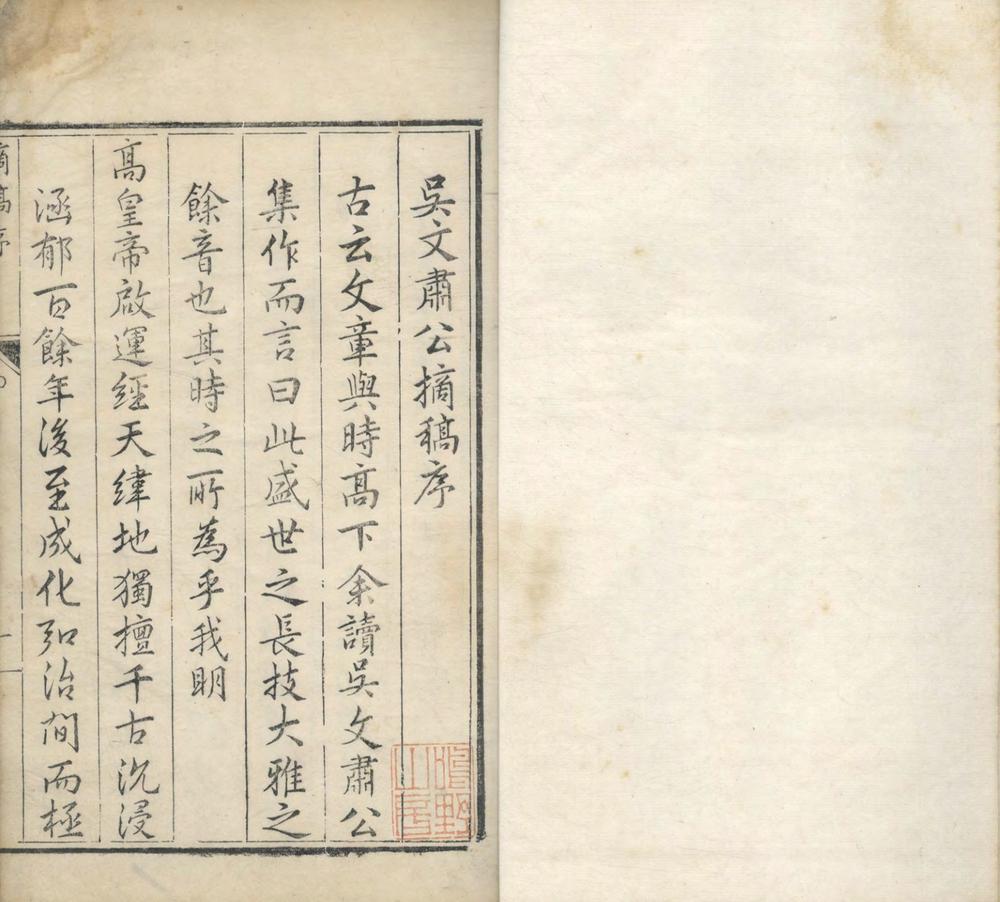 吳文肅公摘稿序
古云文章與時高下余讀吳文肅公
集作而言曰此盛世之長技大雅之
餘音也其時之所為乎我明
高皇帝啟運經天緯地獨擅千古沉浸
涵郁百餘年後至成化弘治間而極
摘稿序
一